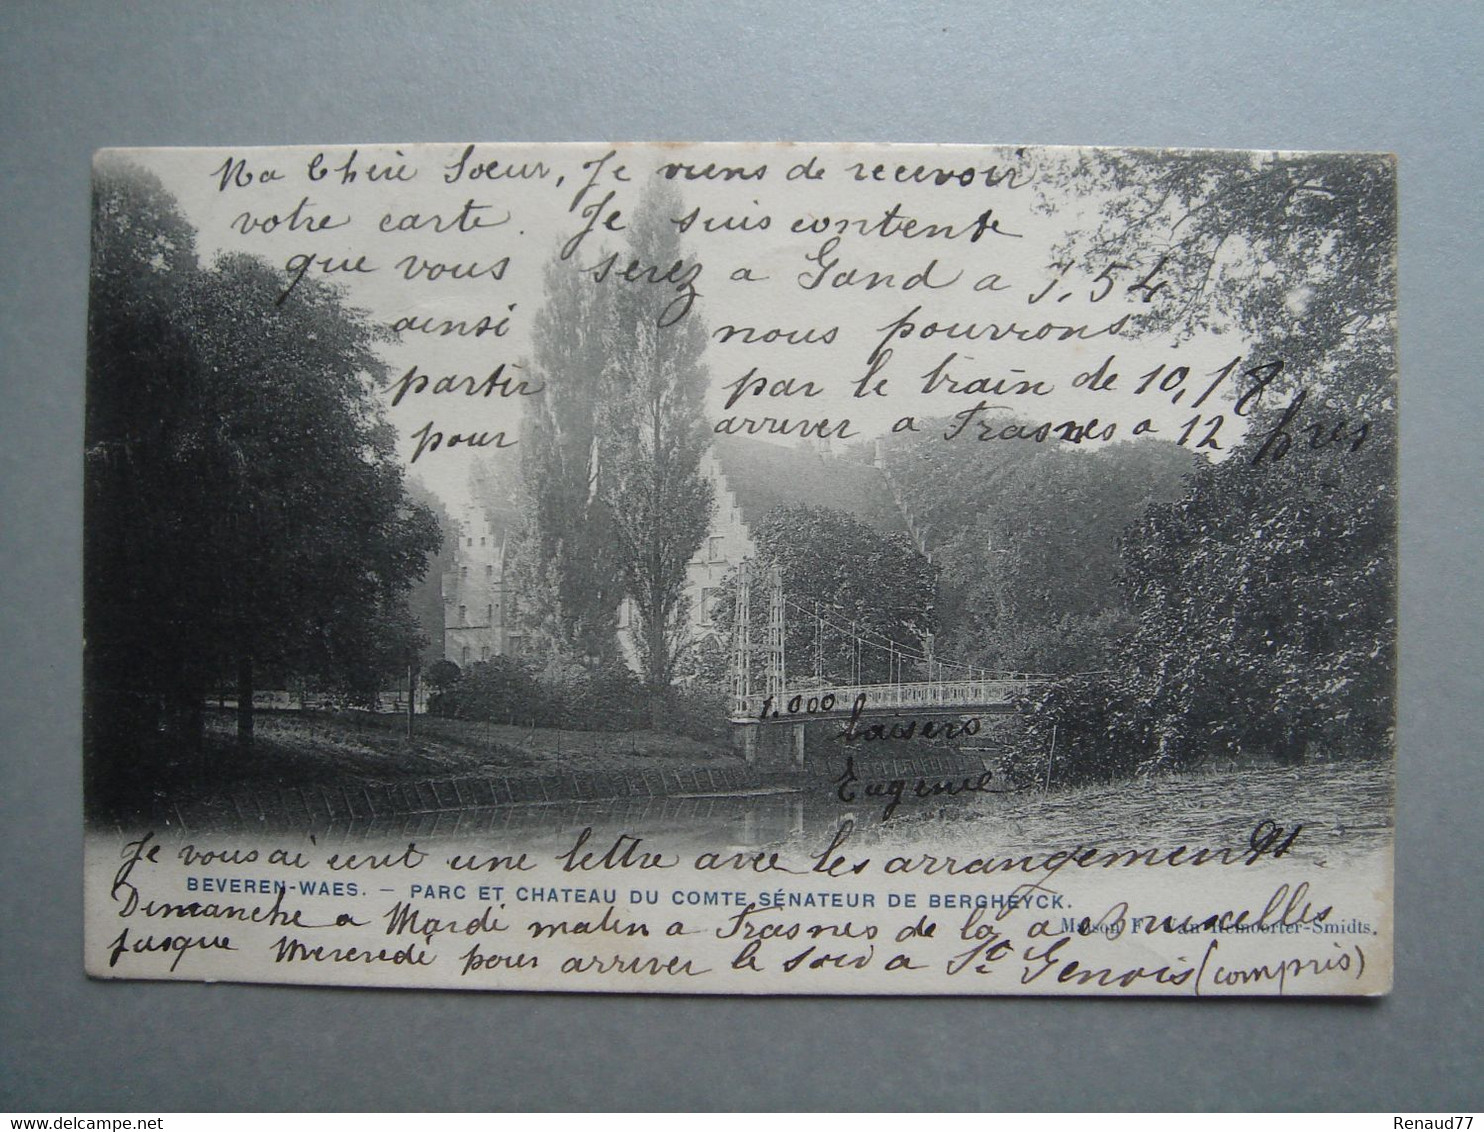 Ma Chère Soeur, Je viens de recevoir
votre carte. Je suis contente
que vous serez a Gand a 9,54
ainsi nous pouvrons
partir par le train de 10,18
pour arriver a Frasnes a 12 hres
1.000
baisers
Eugenie
Je vous ai ecrit une lettre avec les arrangements
BEVEREN-WAES. — PARC ET CHATEAU DU COMTE SÉNATEUR DE BERGHEYCK.
Dimanche a Mardi matin a Frasnes de la a Bruxelles
Maison F. Van Remoorter-Smidts.
jusque Mercredi pour arriver le soir a St Genois (compris)
Renaud77